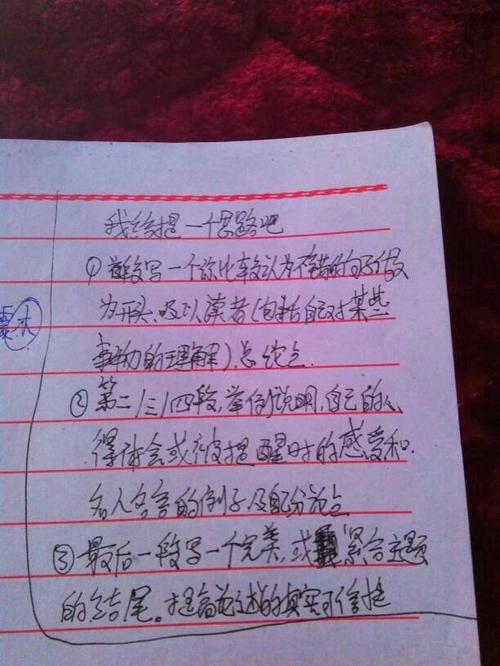 我给提一个思路吧
①首段写一个你比较认为不错的句子做
为开头,吸引读者(包括自己对某些
事物的理解).总论点.
②第二/三/四段,举例说明,自己的心
得体会或被提醒时的感受和
名人名言的例子及配分论点
③最后一段写一个完美,或紧合主题
的结尾。提高论述的真实可信性